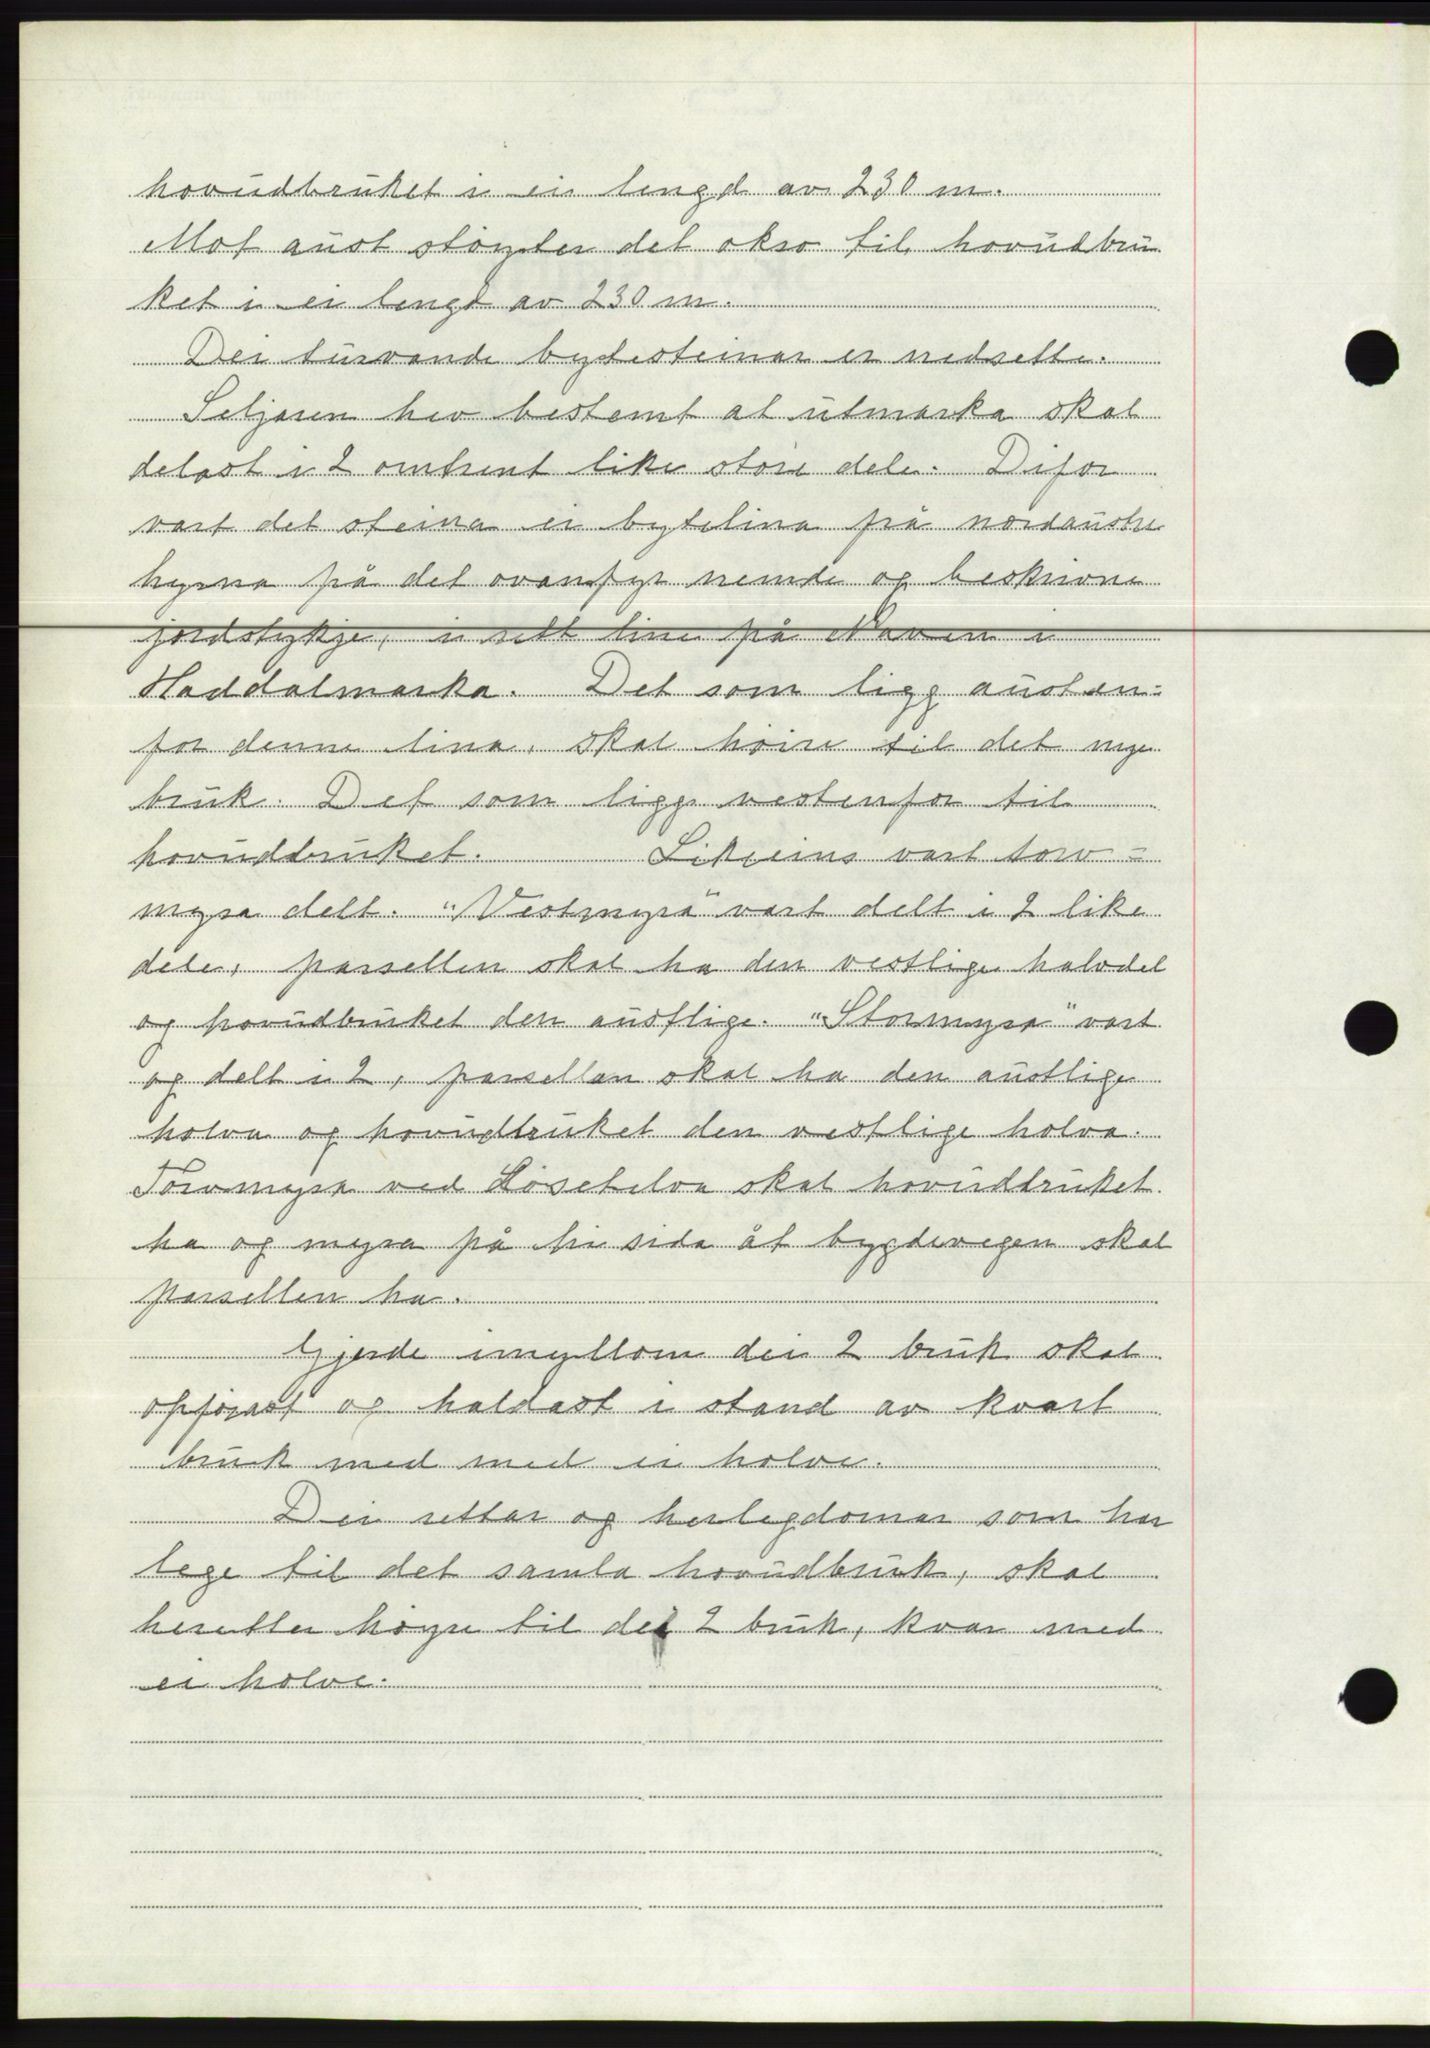 hovudbruket i ei lengd av 230 m.
Mot aust støyter det okso til hovudbru
ket i ei lengd av 230 m.
Dei turvande bytesteinar er nedsette.
Seljaren hev bestemt at utmarka skal
delast i 2 omtrent like store dele. Difor
vart det steina ei bytelina frå nordaustre
hyrna på det ovanfyr nemde og beskrivne
jordstykje, i rett line på Naven i
Haddalmarka. Det som ligg austen-
for denne lina, skal høire til det nye
bruk. Det som ligg vestenfor til
hovudbruket. Likeeins vart torv-
myra delt. "Vestmyra" vart delt i 2 like
dele, parsellen skal ha den vestlige halvdel
og hovudbruket den austlige. "Stormyra" vart
og delt i 2, parsellen skal ha den austlige
holva og hovudbruket den vestlige holva.
Torvmyra ved Løsetelva skal hovudbruket
ha og myra på hi sida åt bygdevegen skal
parsellen ha.
Gjerde imyllom dei 2 bruk skal
oppførast og haldast i stand av kvart
bruk med med ei holve.
Dei rettar og herlegdomar som har
lege til det samla hovudbruk, skal
heretter høyre til dei 2 bruk, kvar med
ei holve.